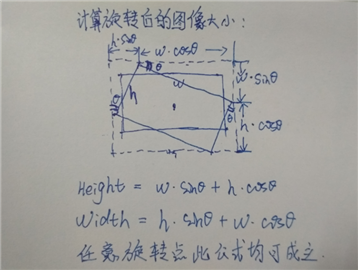 计算旋转后的图像大小:
h·sinθ
w·cosθ
θ
w
w·sinθ
h
θ
θ
h·cosθ
Height = w·sinθ + h·cosθ
Width = h·sinθ + w·cosθ
任意旋转点此公式均可成立.